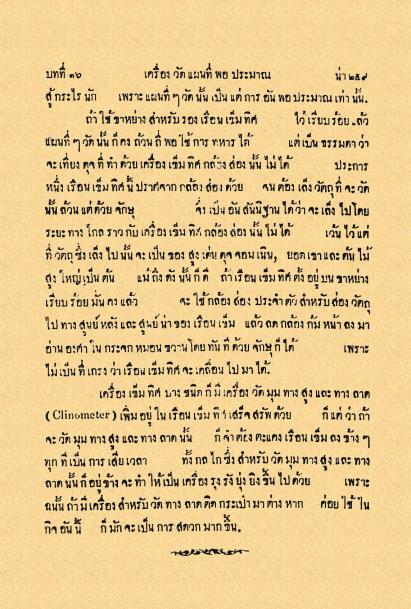 บทที่ ๑๖ เครื่อง วัด แผนที่ พอ ประมาณ น่า ๒๕๙
สู้ กระไร นัก เพราะ แผนที่ ๆ วัด นั้น เป็น แต่ การ อัน พอ ประมาณ เท่า นั้น.
ถ้า ใช้ ขาหย่าง สำหรับ รอง เรือน เข็ม ทิศ ไว้ เรียบ ร้อย แล้ว
แผนที่ ๆ วัด นั้น ก็ คง ล้วน ที่ พอ ใช้ การ ทหาร ได้ แต่ เป็น ธรรมดา ว่า
จะ เที่ยง ดุจ ที่ ทำ ด้วย เครื่อง เข็ม ทิศ กล้อง ส่อง นั้น ไม่ ได้ ประการ
หนึ่ง เรือน เข็ม ทิศ นี้ ปราศจาก กล้อง ส่อง ด้วย จน ต้อง เล็ง วัดถุ ที่ จะ วัด
นั้น ล้วน แต่ ด้วย จักษุ จึ่ง เป็น อัน สันนิฐาน ได้ ว่า จะ เล็ง ไป โดย
ระยะ ทาง ไกล ราว กับ เครื่อง เข็ม ทิศ กล้อง ส่อง นั้น ไม่ ได้ เว้น ไว้ แต่
ที่ วัดถุ ซึ่ง เล็ง ไป นั้น จะ เป็น ของ สูง เด่น ดุจ จอม เนิน, ยอด เขา และ ต้น ไม้
สูง ใหญ่ เป็น ต้น แม้ ถึง ดัง นั้น ก็ ดี ถ้า เรือน เข็ม ทิศ ตั้ง อยู่ บน ขาหย่าง
เรียบ ร้อย มั่น คง แล้ว จะ ใช้ กล้อง ส่อง ประจำ ตัว สำหรับ ส่อง วัดถุ
ไป ทาง ศูนย์ หลัง และ ศูนย์ น่า ของ เรือน เข็ม แล้ว ลด กล้อง ก้ม หน้า ลง มา
อ่าน องศา ใน กระจก หมอน ขวาน โดย ทัน ที ด้วย จักษุ ก็ ได้ เพราะ
ไม่ เป็น ที่ เกรง ว่า เรือน เข็ม ทิศ จะ เคลื่อน ไป มา ได้.
เครื่อง เข็ม ทิศ บาง ชนิด ก็ มี เครื่อง วัด มุม ทาง สูง และ ทาง ลาด
(Clinometer) เพิ่ม อยู่ ใน เรือน เข็ม ทิศ เสร็จ สรัพ ด้วย ก็ แต่ ว่า ถ้า
จะ วัด มุม ทาง สูง และ ทาง ลาด นั้น ก็ จำ ต้อง ตะแคง เรือน เข็ม ลง ข้าง ๆ
ทุก ที เป็น การ เสีย เวลา ทั้ง กล ไก ซึ่ง สำหรับ วัด มุม ทาง สูง และ ทาง
ลาด นั้น ก็ อยู่ ข้าง จะ ทำ ให้ เป็น เครื่อง รุง รัง ยุ่ง ยิ่ง ขึ้น ไป ด้วย เพราะ
ฉนั้น ถ้า มี เครื่อง สำหรับ วัด ทาง ลาด ติด กระเป๋า มา ต่าง หาก ค่อย ใช้ ใน
กิจ อัน นี้ ก็ มัก จะ เป็น การ สดวก มาก ขึ้น.